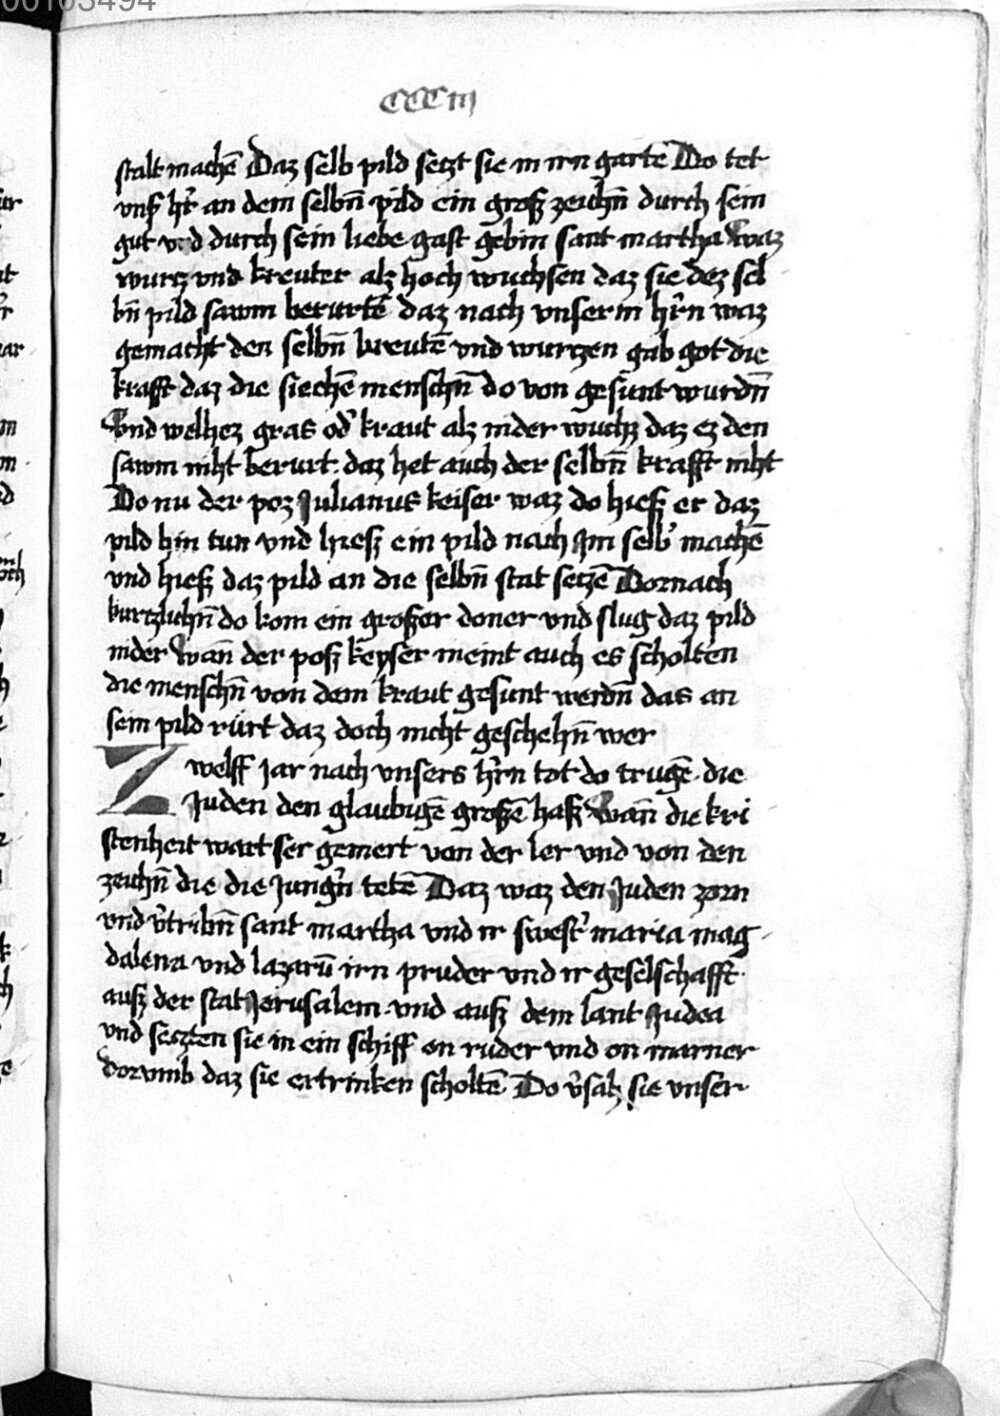 00103494
CCCiij
stalt machē Daz selb pild setzt sie in irn gartē Do tet
vnß hr̄ an dem selbn̄ pild ein groß zeichn̄ durch sein
gut vnd durch sein liebe gast gebin sant martha Swaz
wurtz vnd kreuter alz hoch wuchsen daz sie dez sel
bn̄ pild sawm berurtē daz nach vnserm hr̄n waz
gemacht den selbn̄ kreutē vnd wurtzen gab got die
krafft daz die siechē menschn̄ do von gesunt wurdn̄
Vnd welhez gras od' kraut alz nider wuchz daz ez den
sawm niht berurt daz het auch der selbn̄ krafft niht
Do nu der poz Julianus keiser waz do hieß er daz
pild hin tun vnd hieß ein pild nach Im selb' machē
vnd hieß daz pild an die selbn̄ stat setzē Dornach
kurtzlichn̄ do kom ein großer doner vnd slug daz pild
nider Wan̄ der poß keyser meint auch es scholten
die menschn̄ von dem kraut gesunt werdn̄ das an
sein pild rürt daz doch nicht geschehn̄ wer
Zwelff jar nach vnsers hr̄n tot do trugē die
Juden den glaubigē großē haß Wan̄ die kri
stenheit wart ser gemert von der ler vnd von den
zeichn̄ die die Jungr̄n tetē Daz waz den Juden zorn
vnd v̄tribn̄ sant martha vnd ir swest' maria mag
dalena vnd lazarū irn pruder vnd ir geselschafft
auß der stat Jerusalem vnd auß dem lant Judea
vnd setzten sie in ein schiff on ruder vnd on marner
dorvmb daz sie ertrinken scholtē Do v̄sah sie vnser